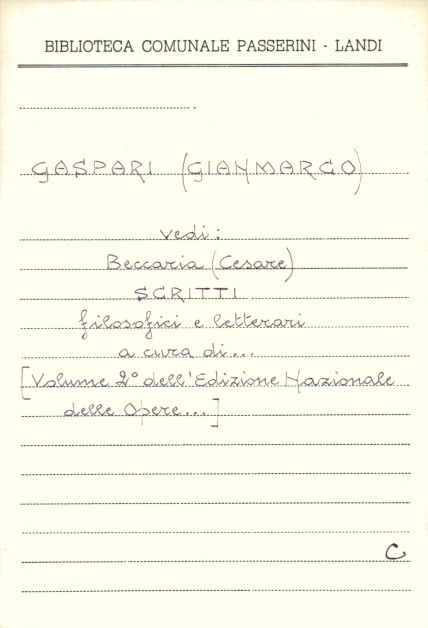 BIBLIOTECA COMUNALE PASSERINI - LANDI
GASPARI (GIANMARCO)
vedi:
Beccaria (Cesare)
SCRITTI
filosofici e letterari
a cura di...
[Volume 2° dell'Edizione Nazionale
delle Opere...]
C